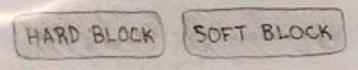 HARD BLOCK
SOFT BLOCK